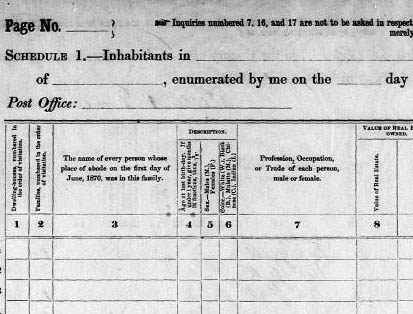 Page No.
Inquiries numbered 7, 16, and 17 are not to be asked in respect
merely
SCHEDULE 1.—Inhabitants in
of , enumerated by me on the day
Post Office:
Dwelling-houses, numbered in the order of visitation.
Families, numbered in the order of visitation.
The name of every person whose
place of abode on the first day of
June, 1870, was in this family.
DESCRIPTION.
Age at last birth-day. If
under 1 year, give months
in fractions, thus,
Sex.—Males (M.),
Females (F.)
Color.—White (W.), Black
(B.), Mulatto (M.), Chi-
nese (C.), Indian (I.)
Profession, Occupation,
or Trade of each person,
male or female.
VALUE OF REAL
OWNED.
Value of Real Estate.
1 2 3 4 5 6 7 8